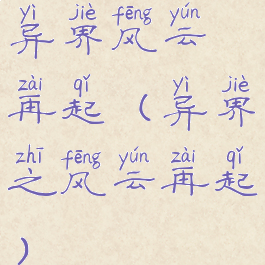 yì jiè fēng yún
异界风云
zài qǐ yì jiè
再起(异界
zhī fēng yún zài qǐ
之风云再起
)